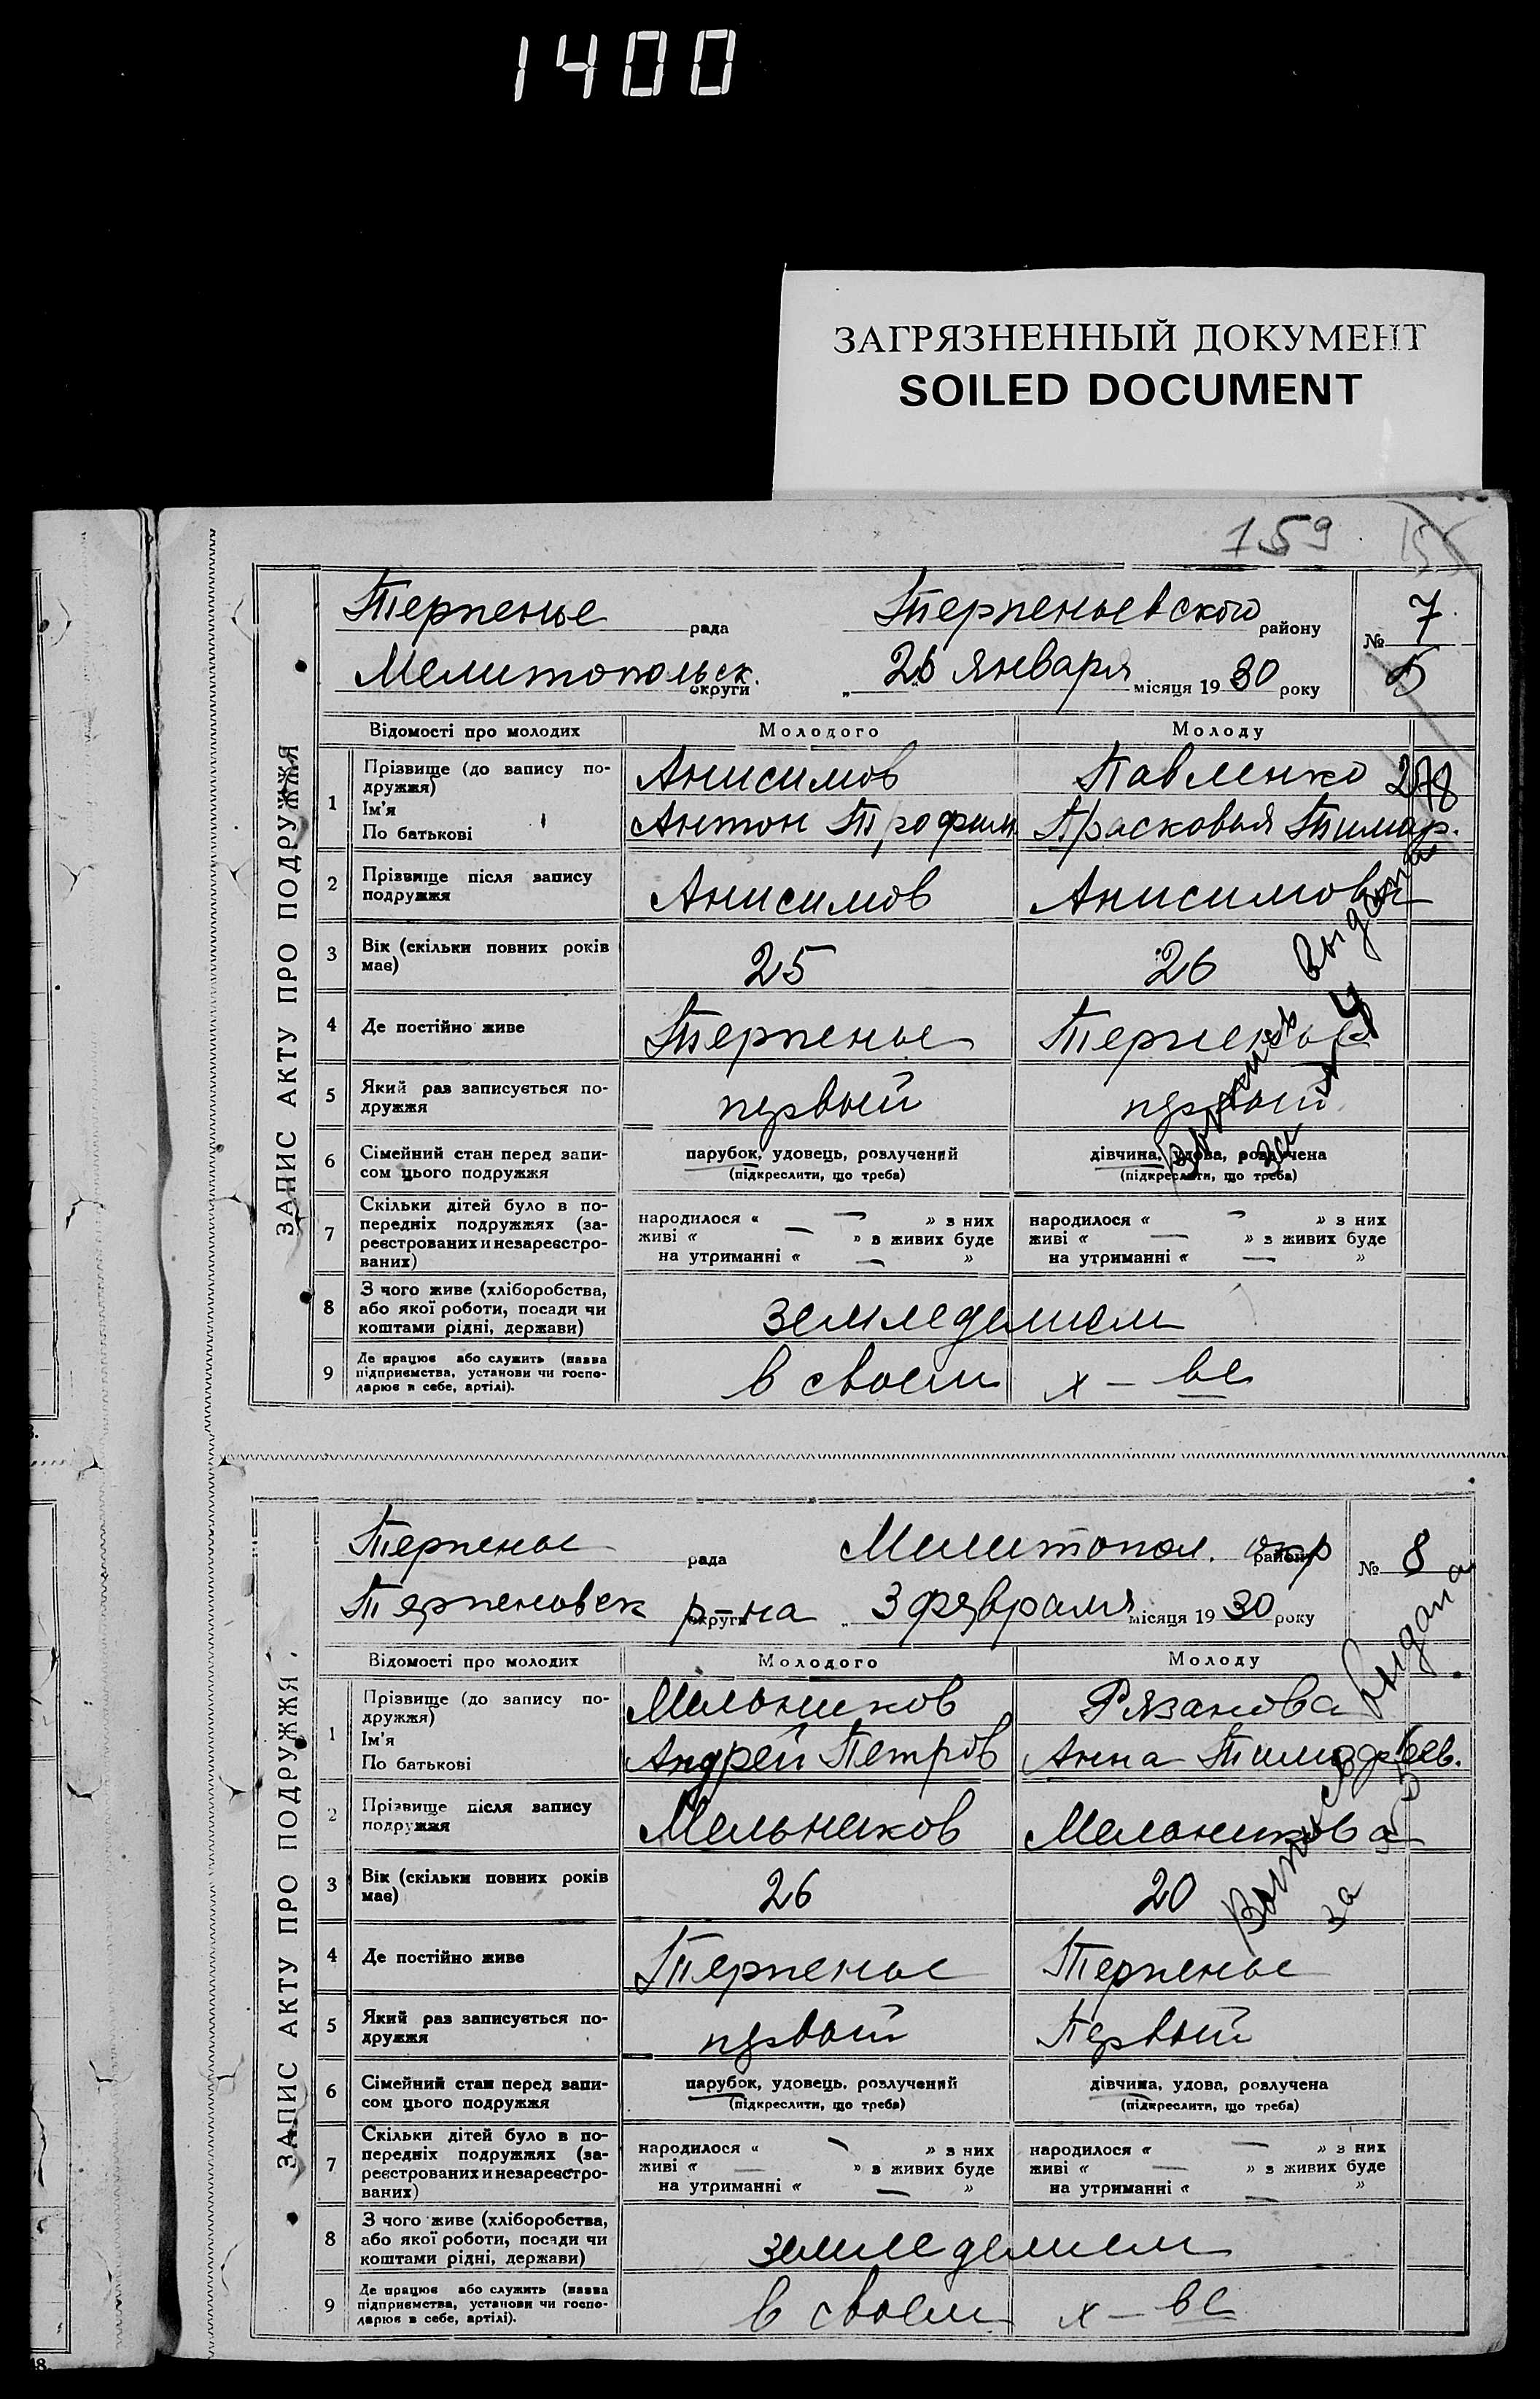 1400
ЗАГРЯЗНЕННЫЙ ДОКУМЕНТ
SOILED DOCUMENT
159
155
ЗАПИС АКТУ ПРО ПОДРУЖЖЯ
Терпенье рада Терпеньевского району № 7
Мелитопольск. округи „26 января місяця 1930 року 5
Відомості про молодих Молодого Молоду
1 Прізвище (до запису по-
дружжя)
Ім'я
По батькові
Анисимов Павленко 278
Антон Трофим. Прасковья Тимоф.
2 Прізвище після запису
подружжя
Анисимов Анисимова
3 Вік (скільки повних років
має)
25 26
4 Де постійно живе Терпенье Терпенье
5 Який раз записується по-
дружжя
первый первый
6 Сімейний стан перед запи-
сом цього подружжя
парубок, удовець, розлучений дівчина, удова, розлучена
(підкреслити, що треба) (підкреслити, що треба)
7 Скільки дітей було в по-
передніх подружжях (за-
реєстрованих и незареєстро-
ваних)
народилося « — » з них народилося « — » з них
живі « — » в живих буде живі « — » з живих буде
на утриманні « — » на утриманні « — »
8 З чого живе (хліборобства,
або якої роботи, посади чи
коштами рідні, держави)
земледелием
9 Де працює або служить (назва
підприємства, установи чи госпо-
дарює в себе, артілі).
в своем х-ве
Выпись выдана
за № 4
ЗАПИС АКТУ ПРО ПОДРУЖЖЯ
Терпенье рада Мелитопол. окр району № 8
Терпеновск р-на округи „ 3 февраля місяця 1930 року
Відомості про молодих Молодого Молоду
1 Прізвище (до запису по-
дружжя)
Ім'я
По батькові
Мельников Рязанова
Андрей Петров Анна Тимофеев.
2 Прізвище після запису
подружжя
Мельников Мельникова
3 Вік (скільки повних років
має)
26 20
4 Де постійно живе Терпенье Терпенье
5 Який раз записується по-
дружжя
первый Первый
6 Сімейний стан перед запи-
сом цього подружжя
парубок, удовець, розлучений дівчина, удова, розлучена
(підкреслити, що треба) (підкреслити, що треба)
7 Скільки дітей було в по-
передніх подружжях (за-
реєстрованих и незареєстро-
ваних)
народилося « — » з них народилося « — » з них
живі « — » в живих буде живі « — » з живих буде
на утриманні « — » на утриманні « — »
8 З чого живе (хліборобства,
або якої роботи, посади чи
коштами рідні, держави)
земледелием
9 Де працює або служить (назва
підприємства, установи чи госпо-
дарює в себе, артілі).
в своем х-ве
Выпись выдана
за
8.